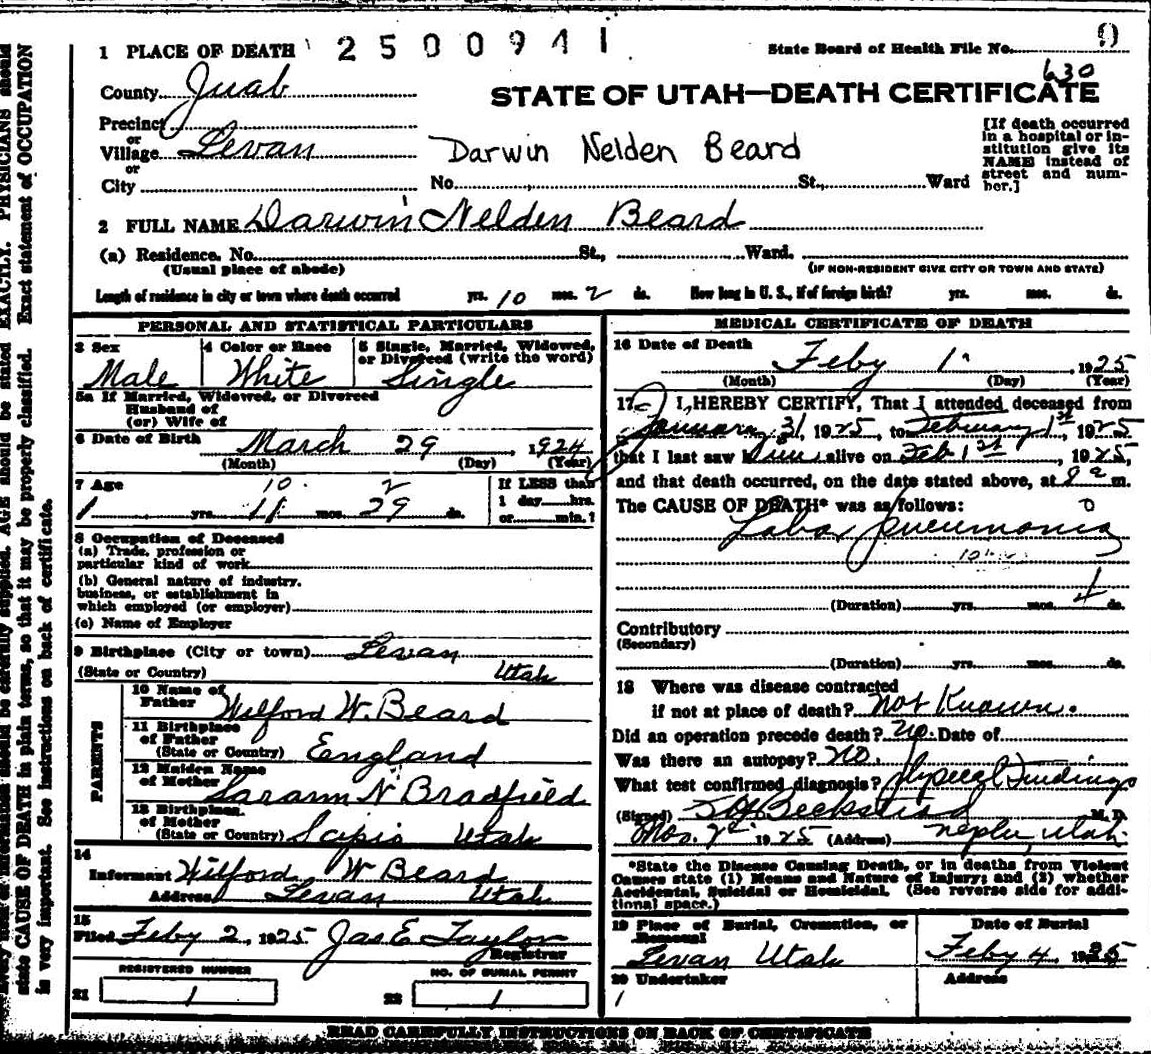 1 PLACE OF DEATH 2500941 State Board of Health File No. 0
630
County Juab STATE OF UTAH—DEATH CERTIFICATE
Precinct
or
Village Levan Darwin Nelden Beard
or
City No. St., Ward
[If death occurred
in a hospital or in-
stitution give its
NAME instead of
street and num-
ber.]
2 FULL NAME Darwin Nelden Beard
(a) Residence. No. St., Ward.
(Usual place of abode) (IF NON-RESIDENT GIVE CITY OR TOWN AND STATE)
Length of residence in city or town where death occurred yrs. 10 mos. 2 ds. How long in U. S., if of foreign birth? yrs. mos. ds.
PERSONAL AND STATISTICAL PARTICULARS
3 Sex 4 Color or Race 5 Single, Married, Widowed,
or Divorced (write the word)
Male White Single
5a If Married, Widowed, or Divorced
Husband of
(or) Wife of
6 Date of Birth March 29, 1924
(Month) (Day) (Year)
7 Age 10 2
1 yrs. 11 mos. 29 ds.
If LESS than
1 day hrs.
or min.?
8 Occupation of Deceased
(a) Trade, profession or
particular kind of work
(b) General nature of industry,
business, or establishment in
which employed (or employer)
(c) Name of Employer
9 Birthplace (City or town) Levan
(State or Country) Utah
PARENTS
10 Name of
Father Wilford W. Beard
11 Birthplace
of Father
(State or Country) England
12 Maiden Name
of Mother Sarann N Bradfield
13 Birthplace
of Mother
(State or Country) Scipio Utah
14
Informant Wilford W Beard
Address Levan Utah
15
Filed Feby 2, 1925 Jas E Taylor
Registrar
REGISTERED NUMBER NO. OF BURIAL PERMIT
21 1 22 1
MEDICAL CERTIFICATE OF DEATH
16 Date of Death
Feby 1, 1925
(Month) (Day) (Year)
17 I HEREBY CERTIFY, That I attended deceased from
January 31, 1925, to February 1st, 1925
that I last saw him alive on Feb 1st, 1925,
and that death occurred, on the date stated above, at 8 a m.
The CAUSE OF DEATH* was as follows:
Lobar pneumonia
(Duration) yrs. mos. 4 ds.
Contributory
(Secondary)
(Duration) yrs. mos. ds.
18 Where was disease contracted
if not at place of death? Not Known.
Did an operation precede death? no. Date of
Was there an autopsy? no.
What test confirmed diagnosis? Physical Findings
(Signed) Beckstead M.D.
1925 (Address) Nephi, Utah.
*State the Disease Causing Death, or in deaths from Violent
Causes state (1) Means and Nature of Injury; and (2) whether
Accidental, Suicidal or Homicidal. (See reverse side for addi-
tional space.)
19 Place of Burial, Cremation, or
Removal
Levan Utah
Date of Burial
Feby 4, 1925
20 Undertaker Address
READ CAREFULLY INSTRUCTIONS ON BACK OF CERTIFICATE
EXACTLY. PHYSICIANS should
state CAUSE OF DEATH in plain terms, so that it may be properly classified. Exact statement of OCCUPATION
is very important. See instructions on back of certificate.